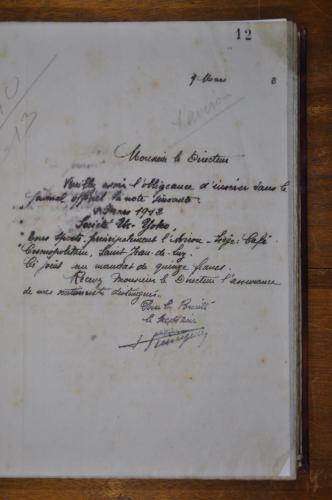 12
9 Mars 2
l'aviron
10
13
Monsieur le Directeur
Veuillez avoir l'obligeance d'insérer dans le
Journal officiel la note suivante
Mars 1912
Société Ur-Yoko
Tous Sports, principalement l'Aviron - Siège: Café
Cosmopolitain, Saint Jean-de-Luz.
Ci joint un mandat de quinze francs.
Recevez Monsieur le Directeur l'assurance
de mes sentiments distingués.
Pour la Société
le Secrétaire